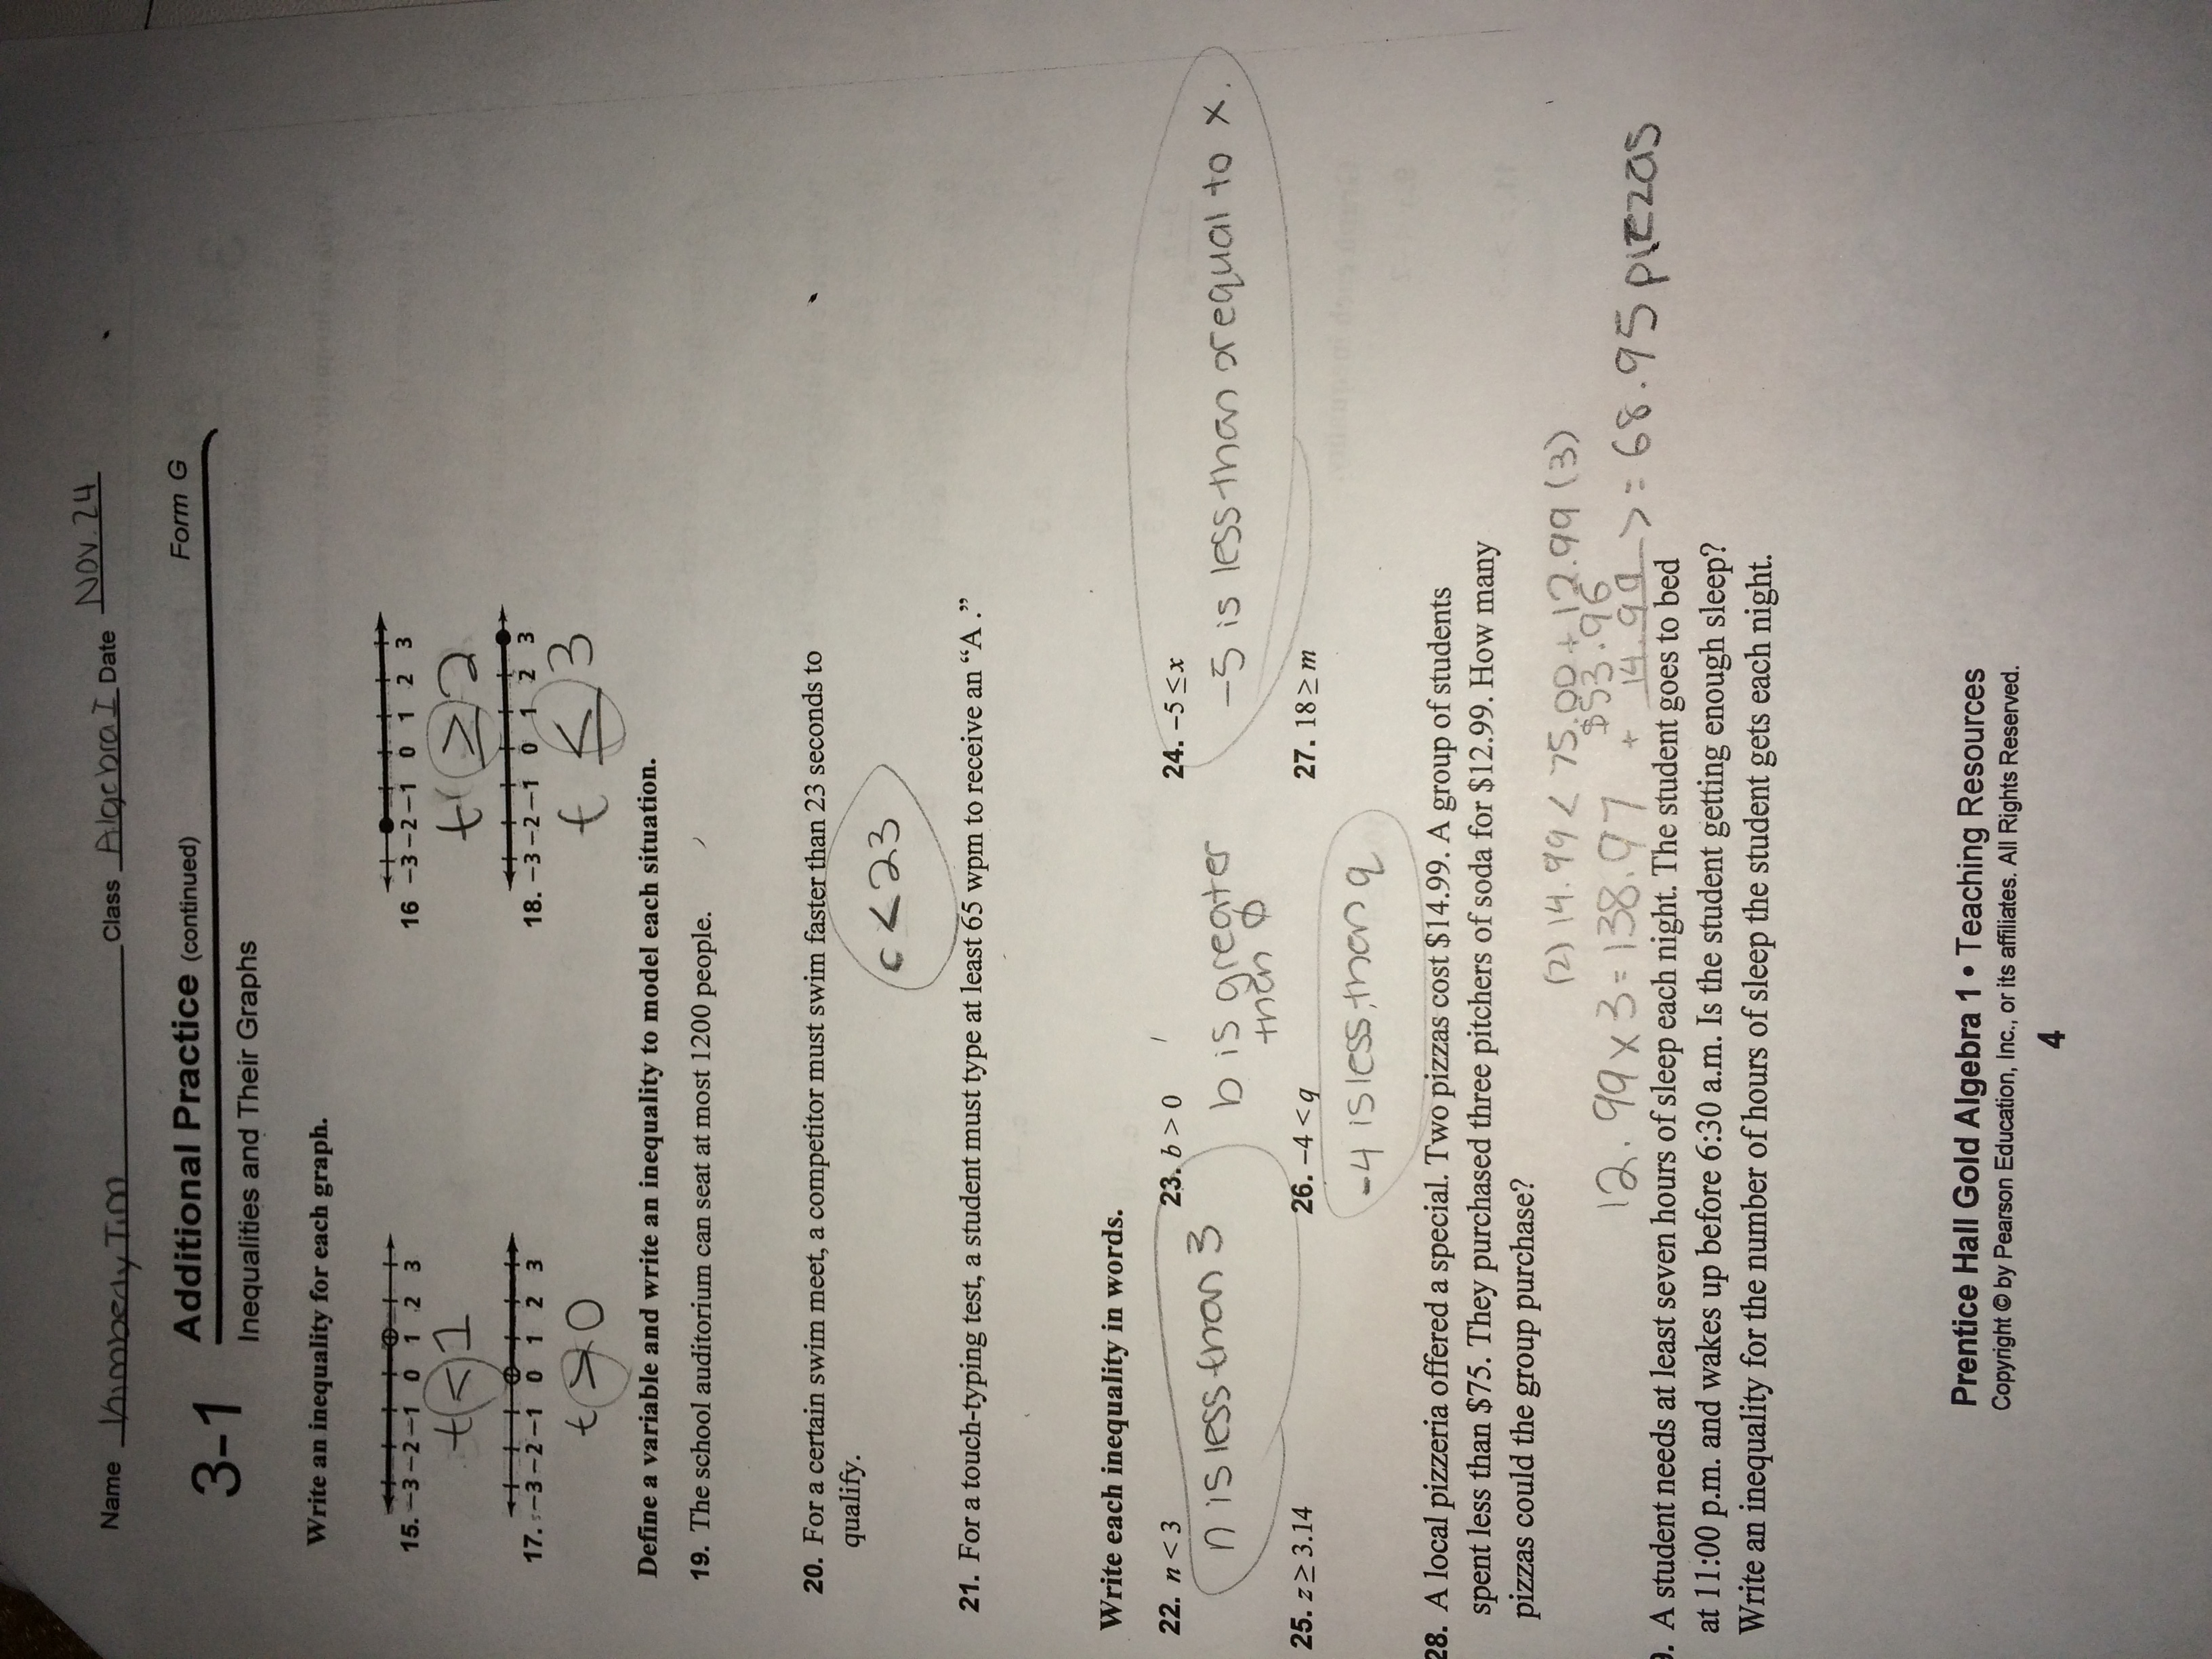 Name Kimberly Tim Class Algebra I Date Nov. 24
3-1 Additional Practice (continued) Form G
Inequalities and Their Graphs
Write an inequality for each graph.
15. −3 −2 −1 0 1 2 3
16 −3 −2 −1 0 1 2 3
t < 1
t ≥ 2
17. −3 −2 −1 0 1 2 3
18. −3 −2 −1 0 1 2 3
t > 0
t ≤ 3
Define a variable and write an inequality to model each situation.
19. The school auditorium can seat at most 1200 people.
20. For a certain swim meet, a competitor must swim faster than 23 seconds to
qualify.
c < 23
21. For a touch-typing test, a student must type at least 65 wpm to receive an “A .”
Write each inequality in words.
22. n < 3 23. b > 0 24. −5 ≤ x
n is less than 3
b is greater
than 0
-5 is less than or equal to x.
25. z ≥ 3.14 26. −4 < q 27. 18 ≥ m
-4 is less than q
28. A local pizzeria offered a special. Two pizzas cost $14.99. A group of students
spent less than $75. They purchased three pitchers of soda for $12.99. How many
pizzas could the group purchase?
(2) 14.99 < 75.00 + 12.99 (3)
$53.96
12.99 x 3 = 138.97 + 14.99 > = 68.95 pizzas
. A student needs at least seven hours of sleep each night. The student goes to bed
at 11:00 p.m. and wakes up before 6:30 a.m. Is the student getting enough sleep?
Write an inequality for the number of hours of sleep the student gets each night.
Prentice Hall Gold Algebra 1 • Teaching Resources
Copyright © by Pearson Education, Inc., or its affiliates. All Rights Reserved.
4